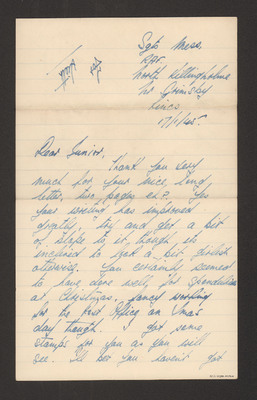 Sgts Mess,
RAF.
North Killingholme
Nr Grimsby
Lincs
17/1/45.
Dear Junior,
Thank you very
much for your nice long
letter, two pages eh? Yes
your writing has improved
greatly, try and get a bit
of slope to it though its
inclined to look a bit girlish
otherwise. You certainly seemed
to have done well for
at Christmas, fancy working
for the Post Office on Xmas
day though. I got some
stamps for you as you will
see. I'll bet you haven't got